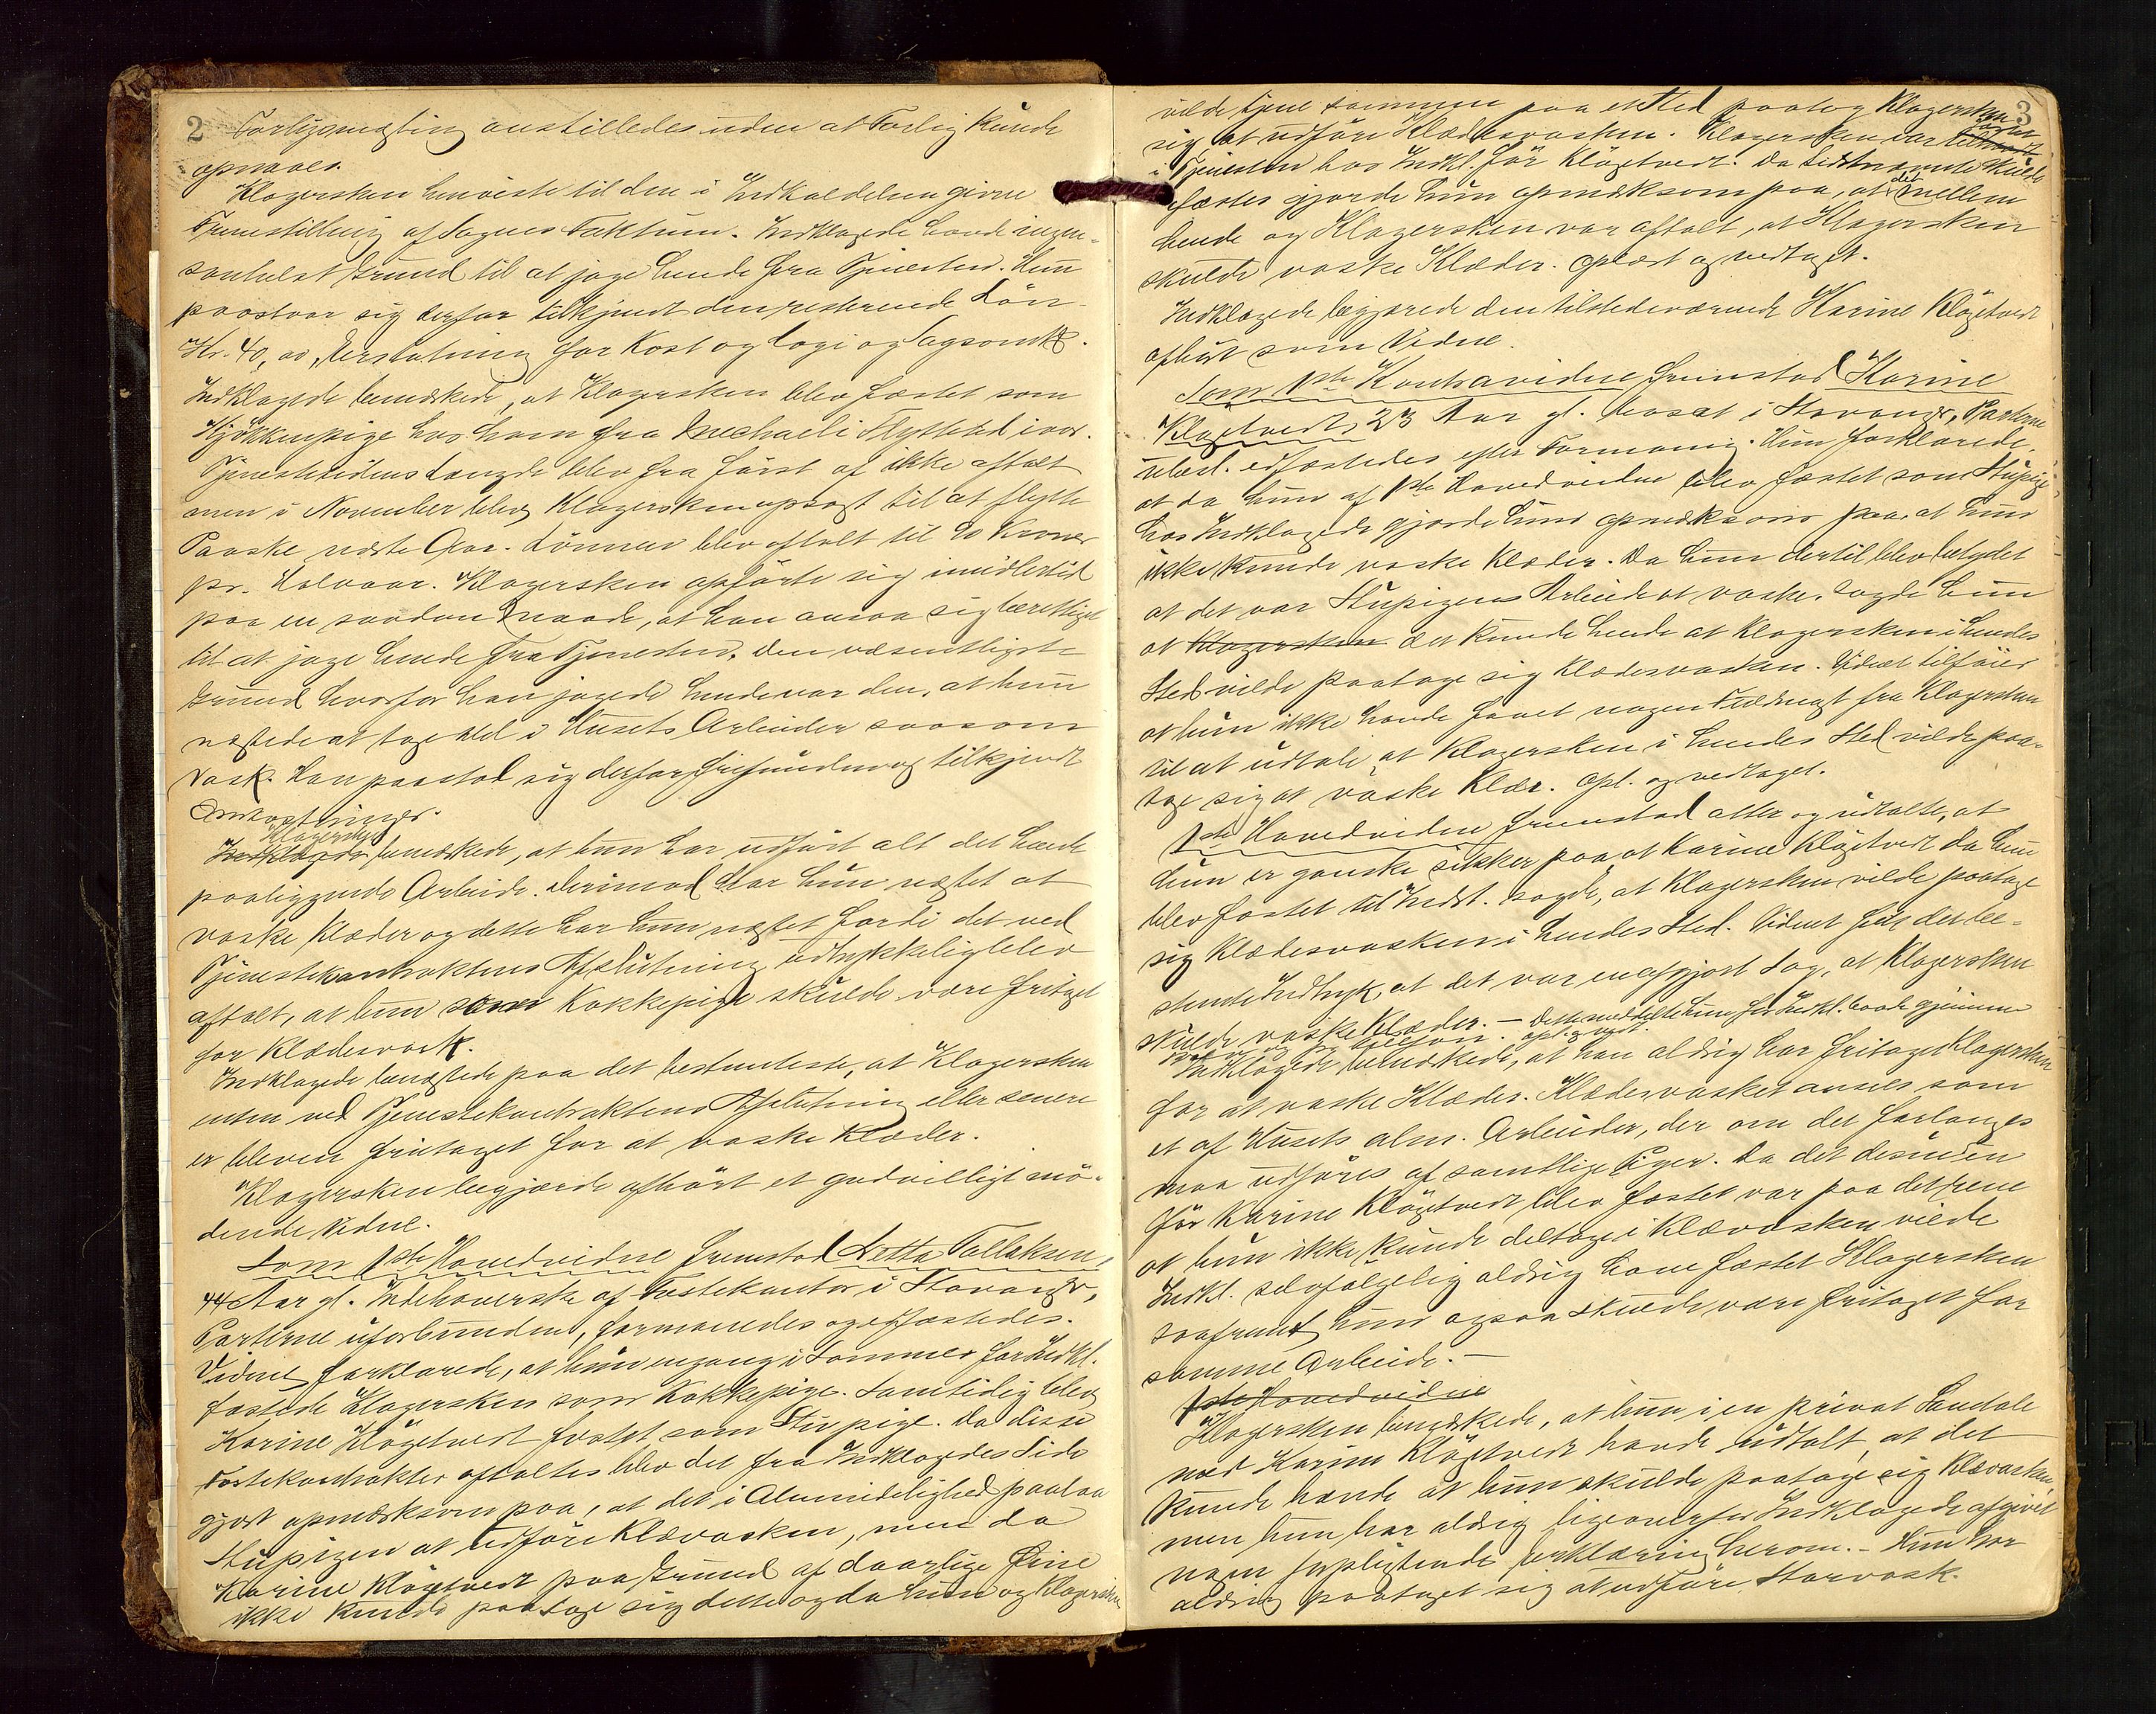 2
Forligsmægling anstilledes uden at Forlig kunde
opnaaes.
Klagersken henviste til den i Indkaldelsen givne
Fremstilling af Sagens Faktum. Indklagede havde ingen-
somhelst Grund til at jage hende fra Tjenesten. Hun
paastaar sig derfor tilkjendt den resterende Løn
Kr. 40, Erstatning for Kost og Logi og Sagsomk.
Indklagede bemærkede, at Klagersken blev fæstet som
Kjøkkenpige hos ham fra Mechaeli Flyttetid ivor.
Tjenestetidens Længde blev fra først af ikke aftalt
men i November blev Klagersken opsagt til at flytte
Paaske næste Aar. Lønnen blev aftalt til 80 Kroner
pr. Halvaar. Klagersken opførte sig imidlertid
paa en saadan Maade, at han ansaa sig berettiget
til at jage hende fra Tjenesten. Den væsentligste
Grund hvorfor han jagede hende var den, at hun
nægtede at tage del i Husets Arbeider saasom
Vask. Han paastod sig derfor frifunden og tilkjendt
Omkostninger.
Klagersken
Indklagede bemærkede, at hun har udført alt det hende
paaliggende Arbeide. Derimod har hun nægtet at
vaske Klæder og dette har hun nægtet fordi det ved
Tjenestekontraktens Afslutning udtrykkelig blev
aftalt, at hun som Kokkepige skulde være fritaget
for Klædevask.
Indklagede benægtede paa det bestemteste, at Klagersken
enten ved Tjenestekontraktens Afslutning eller senere
er bleven fritaget for at vaske Klæder.
Klagersken begjærede afhørt et godvilligt mø-
dende Vidne.
Som 1ste Hovedvidne fremstod Detta Tollaksen,
44 Aar gl. Indehaverske af Fæstekontor i Stavanger,
Parterne uforbunden, formanedes og edfæstedes.
Vidnet forklarede, at hun engang i Sommer for Indkl.
fæstede Klagersken som Kokkepige. Samtidig blev
Karine Kløgetvedt fæstet som Stupige. Da disse
Fæstekontrakter aftaltes blev det fra Indklagedes Side
gjort opmærksom paa, at det i Almindelighed paalaa
Stupigen at udføre Klævasken, men da
Karine Kløgetvedt paa Grund af daarlige Øine
ikke kunde paatage sig dette og da hun og Klagersken
3
vilde tjene sammen paa et Sted paatog Klagersken
sig at udføre Klædesvasken. Klagersken var
fæstet
i Tjenesten hos Indkl. før Kløgetvedt. Da sidstnævnte skulde
fæstes gjorde hun opmærksom paa, at det mellem
hende og Klagersken var aftalt, at Klagersken
skulde vaske Klæder. Oplæst og vedtaget.
Indklagede begjærede den tilstedeværende Karine Kløgetvedt
afhørt som Vidne.
Som 1ste Kontravidne fremstod Karine
Kløgetvedt, 23 Aar gl. bosat i Stavanger, Parterne
ubesl. edfæstedes efter Formaning. Hun forklarede,
at da hun af 1ste Hovedvidne blev fæstet som Stupige
hos Indklagede gjorde hun opmærksom paa, at hun
ikke kunde vaske Klæder. Da hun dertil blev betydet
at det var Stupigens Arbeide at vaske, sagde hun
at Klagersken det kunde hende at Klagersken i hendes
Sted vilde paatage sig Klædesvasken. Vidnet tilføier
at hun ikke havde faaet nogen Fuldmagt fra Klagersken
til at udtale, at Klagersken i hendes Sted vilde paa-
tage sig at vaske Klær. Opl. og vedtaget.
1ste Hovedvidne fremstod atter og udtalte, at
hun er ganske sikker paa at Karine Kløgetvedt da hun
blev fæstet til Indkl. sagde, at Klagersken vilde paatage
sig Klædesvasken i hendes Sted. Vidnet fik det be-
stemte Indtryk, at det var en afgjort Sag, at Klagersken
skulde vaske Klæder. – Dette meddelte hun for Indkl. baade gjennem
opl. og vedt.
Indklagede bemærkede, at han aldrig har fritaget Klagersken
for at vaske Klæder. Klædesvasket ansees som
et af Husets alm. Arbeider, der om det forlanges
maa udføres af samtlige Piger. Da det desuden
før Karine Kløgetvedt blev fæstet var paa det rene
at hun ikke kunde deltage i Klævasken vilde
Indkl. selvfølgelig aldrig have fæstet Klagersken
saafremt hun ogsaa skulde være fritaget for
samme Arbeide. –
1ste Hovedvidne
Klagersken bemærkede, at hun i en privat Samtale
med Karine Kløgetvedt havde udtalt, at det
kunde hænde at hun skulde paatage sig Klævasken
men hun har aldrig ligeoverfor Indklagede afgivet
noen forpligtende Erklæring herom. – Hun har
aldrig paataget sig at udføre Storvask.